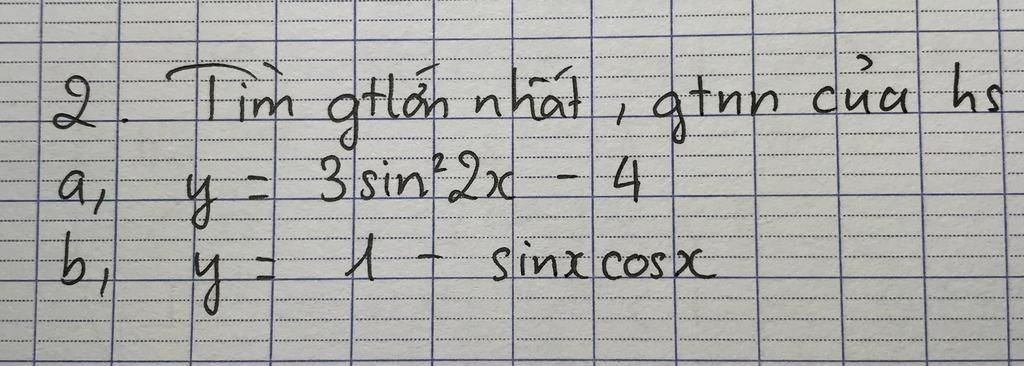 2. Tìm gtlớn nhất, gtnn của hs
a, y = 3 sin²2x - 4
b, y = 1 - sinx cosx